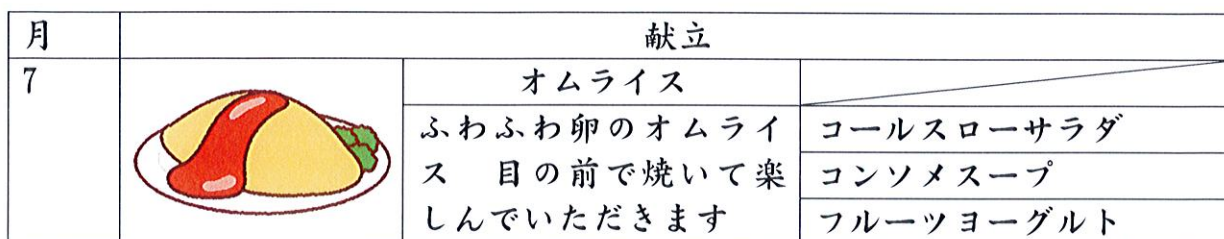 月 献立
7 オムライス
ふわふわ卵のオムライ
ス　目の前で焼いて楽
しんでいただきます
コールスローサラダ
コンソメスープ
フルーツヨーグルト